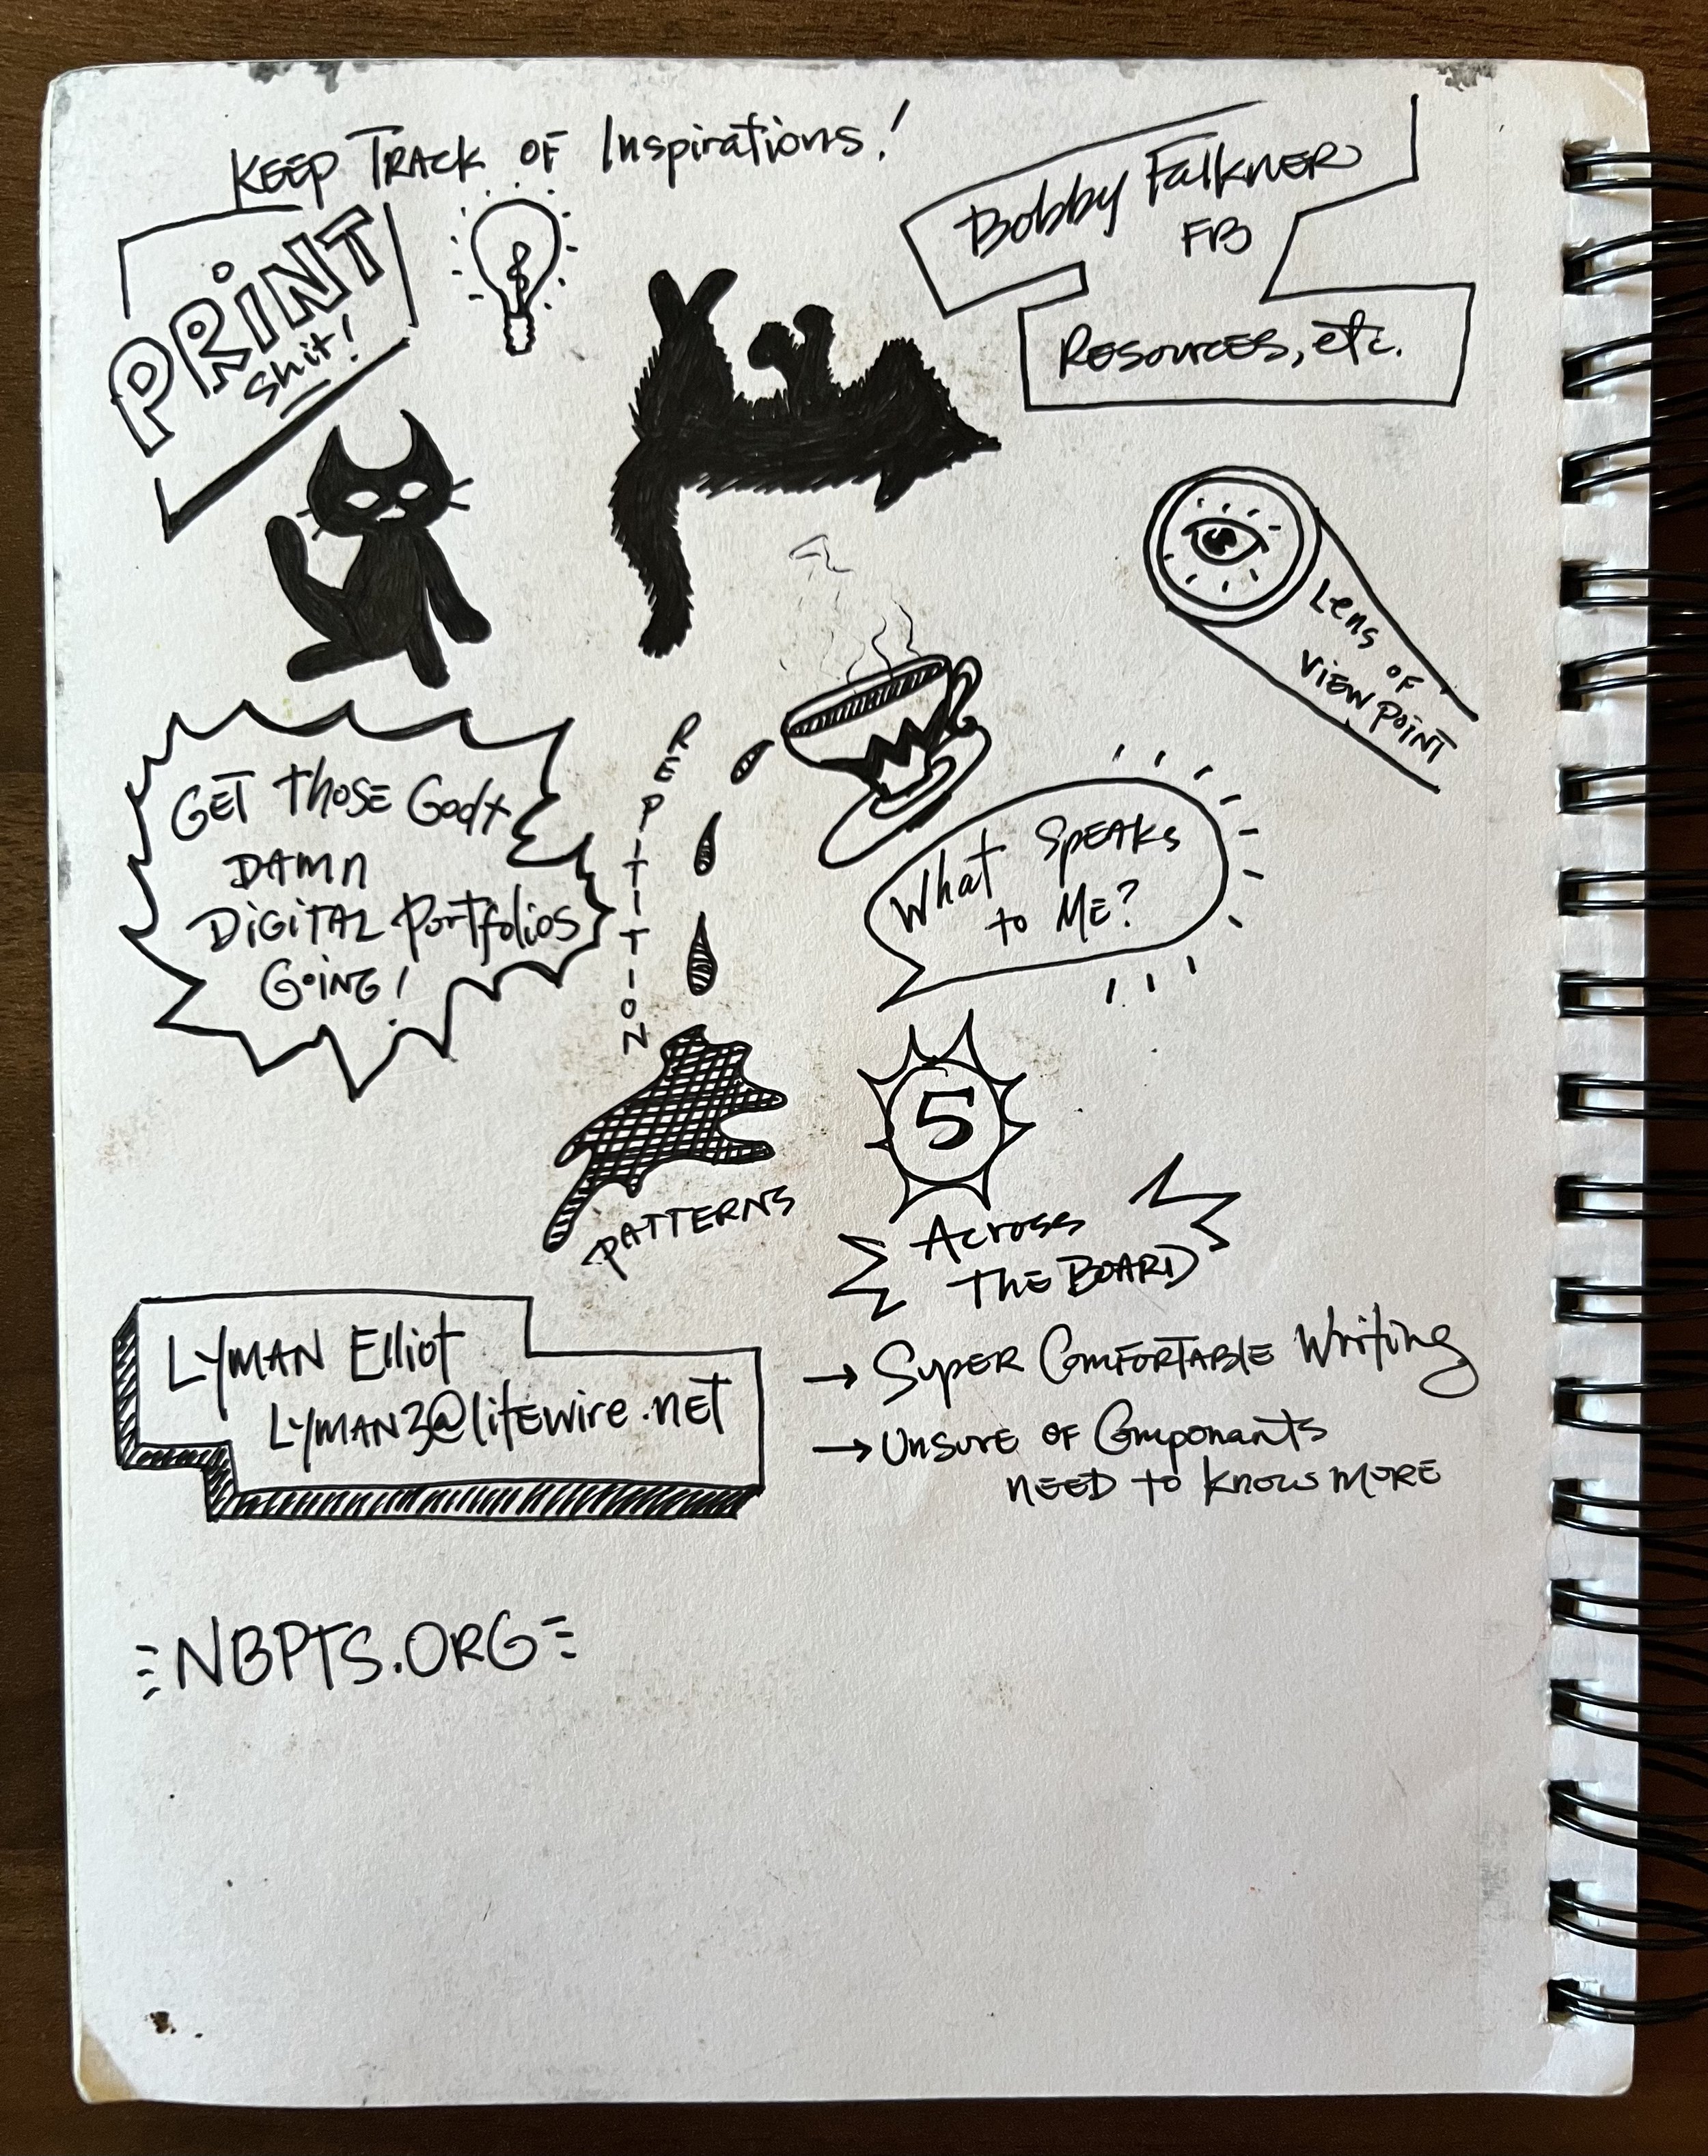 KEEP TRACK OF Inspirations!
PRINT
Shit!
Bobby Falkner
FB
Resources, etc.
Lens of
View Point
GET Those God
DAMN
DIGITAL Portfolios
GOING!
REPITITION
What SPEAKS
to ME?
PATTERNS
5
Across
THE BOARD
LYMAN Elliot
LYMAN3@litewire.net
→ Super Comfortable Writing
→ Unsure of Componants
NEED to know MORE
NBPTS.ORG